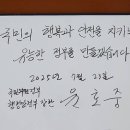 국민의 행복과 안전을 지키는
유능한 정부를 만들겠습니다
2025년 7월 21일
행정안전부 장관 윤호중